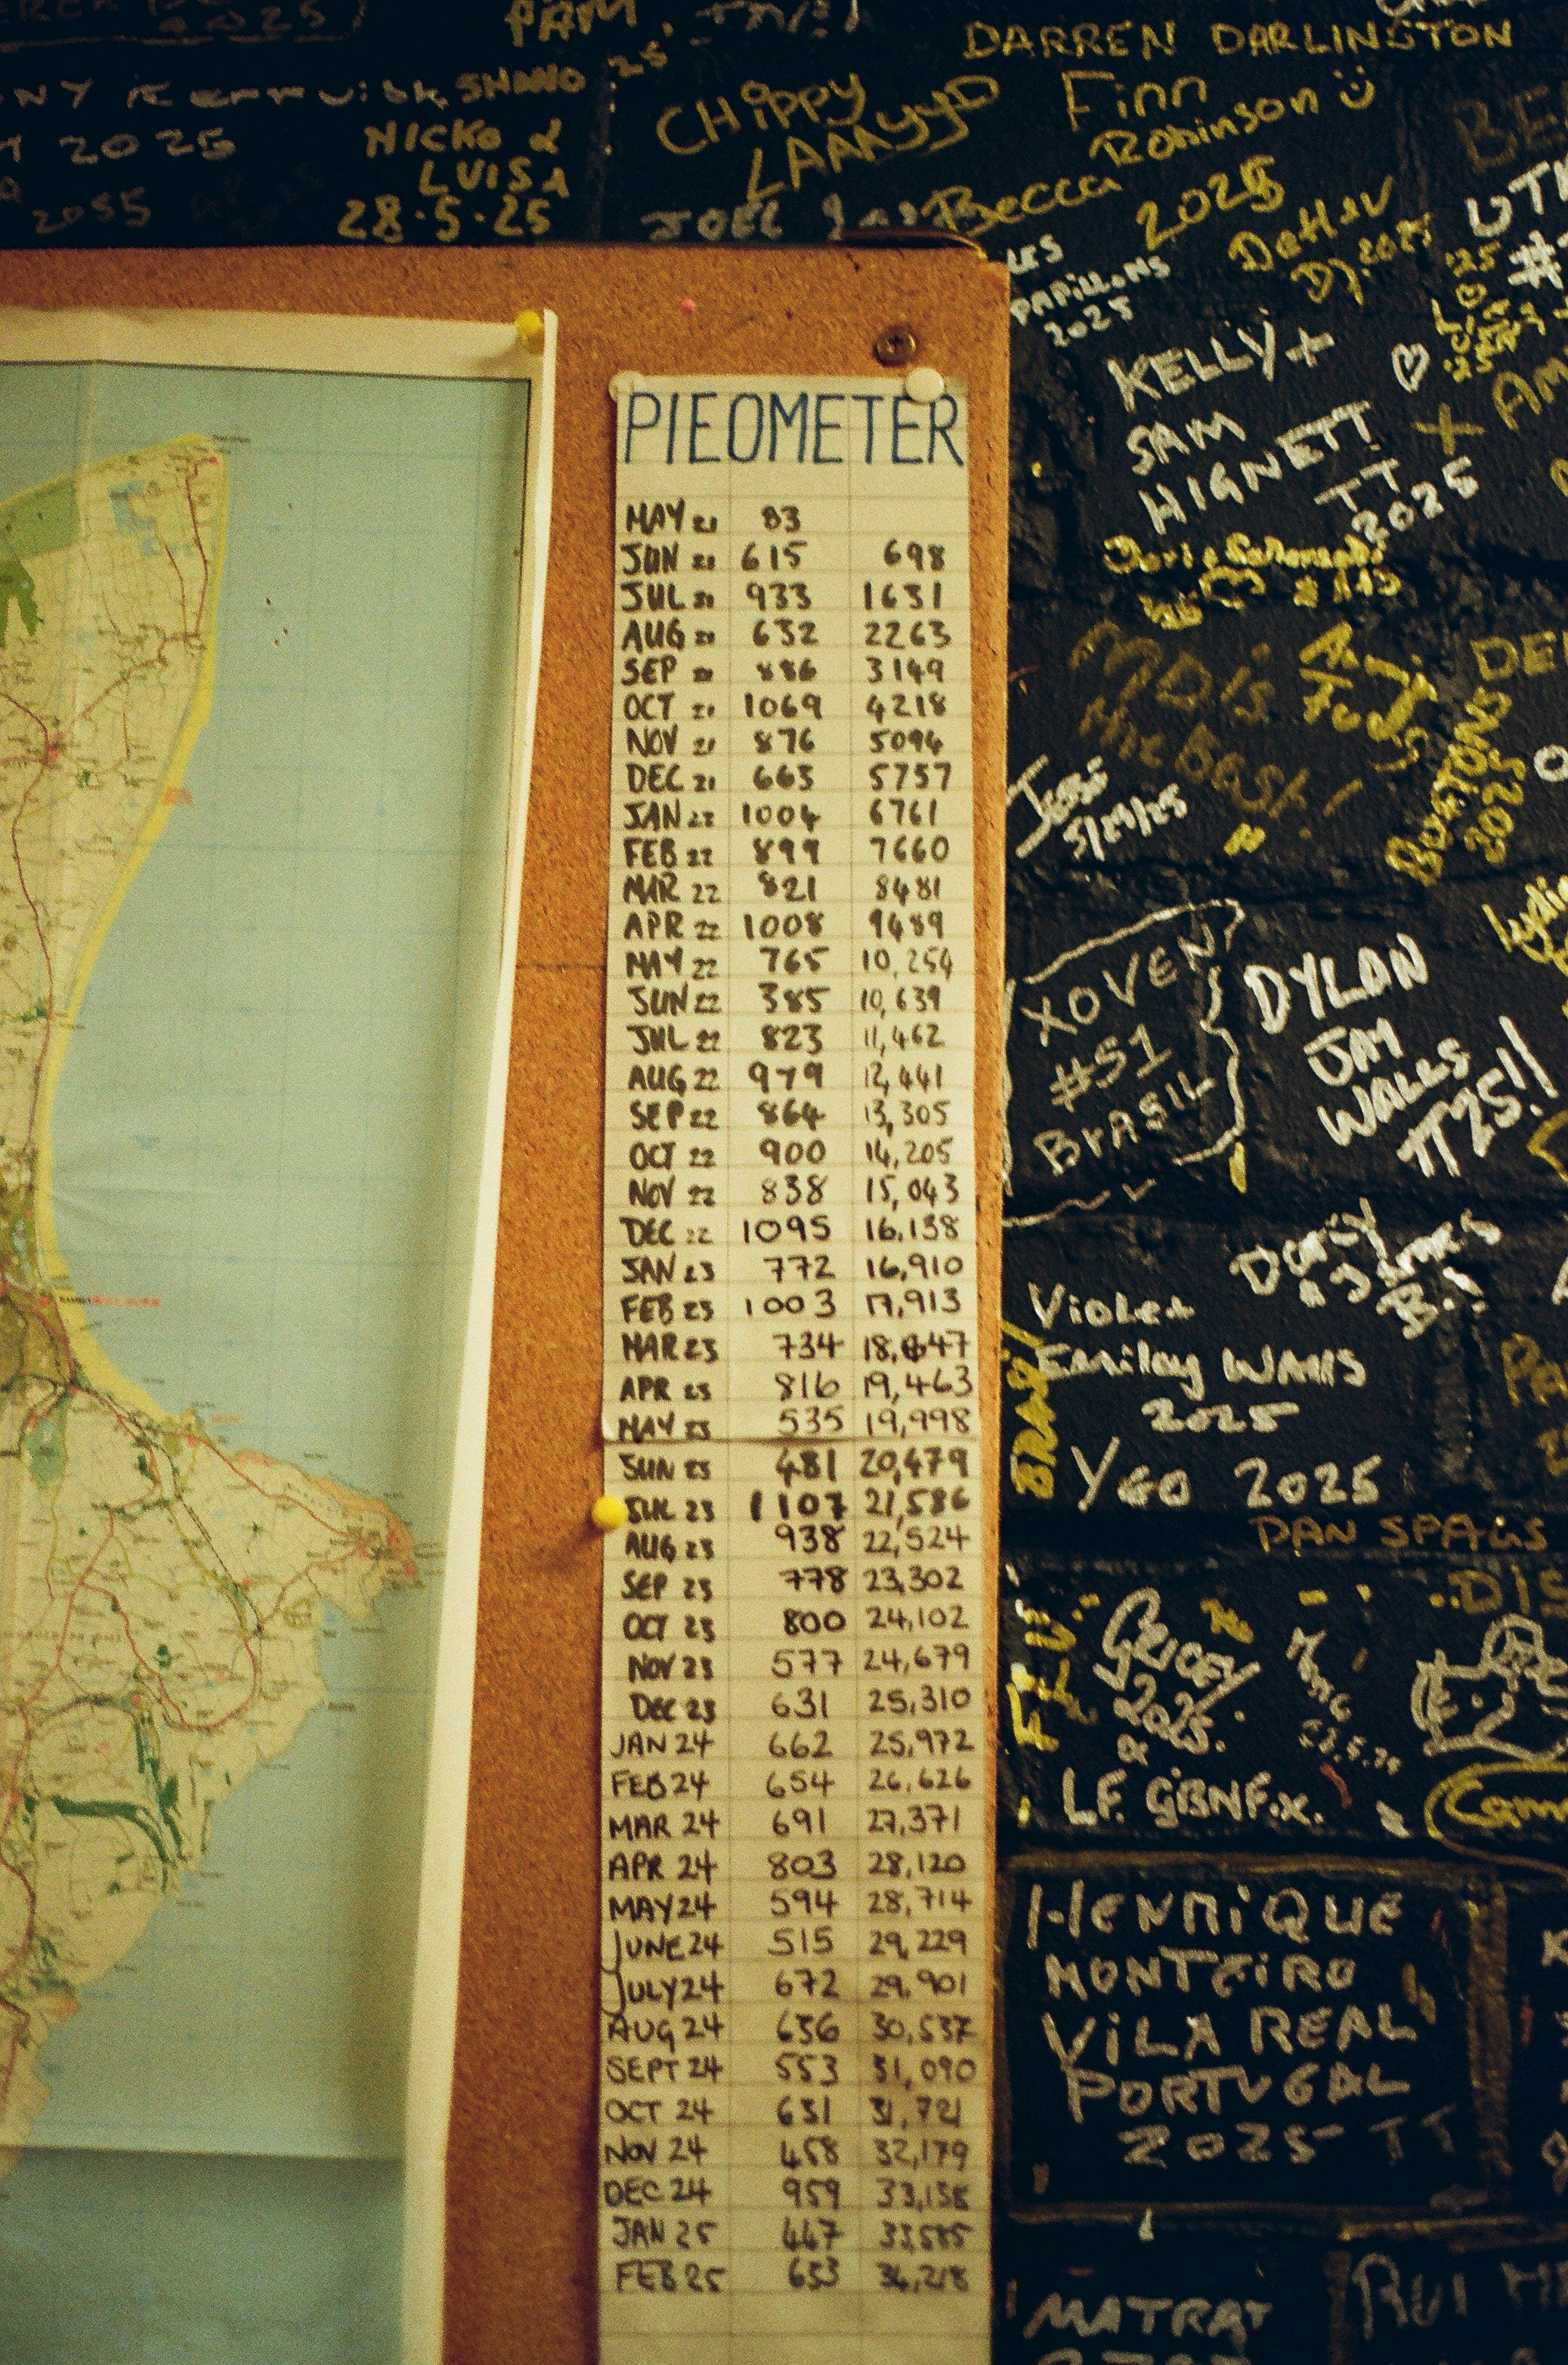 2025
PAM
SHANO 25
2025
NICKO &
LUISA
28.5.25
2055
CHIPPY
LAAAYYD
JOEL
DARREN DARLINGTON
Finn
Robinson
Becca
2025
2025
PAPILLONS
2025
KELLY +
SAM
HIGNETT
TT
2025
PIEOMETER
MAY 21 83
JUN 21 615 698
JUL 21 933 1631
AUG 21 632 2263
SEP 21 886 3149
OCT 21 1069 4218
NOV 21 876 5094
DEC 21 663 5757
JAN 22 1004 6761
FEB 22 899 7660
MAR 22 821 8481
APR 22 1008 9489
MAY 22 765 10,254
JUN 22 385 10,639
JUL 22 823 11,462
AUG 22 979 12,441
SEP 22 864 13,305
OCT 22 900 14,205
NOV 22 838 15,043
DEC 22 1095 16,138
JAN 23 772 16,910
FEB 23 1003 17,913
MAR 23 734 18,647
APR 23 816 19,463
MAY 23 535 19,998
JUN 23 481 20,479
JUL 23 1107 21,586
AUG 23 938 22,524
SEP 23 778 23,302
OCT 23 800 24,102
NOV 23 577 24,679
DEC 23 631 25,310
JAN 24 662 25,972
FEB 24 654 26,626
MAR 24 691 27,371
APR 24 803 28,120
MAY 24 594 28,714
JUNE 24 515 29,229
JULY 24 672 29,901
AUG 24 636 30,537
SEPT 24 553 31,090
OCT 24 631 31,721
NOV 24 458 32,179
DEC 24 959 33,138
JAN 25 447 33,585
FEB 25 633 34,218
MD is
the best!
BUXTONS
2025
Jess
5/29/25
XOVEN
#51
BrASIL
DYLAN
JAY
WALLS
TT25!!
Violet
Emiley WALLS
2025
BRASIL
YGO 2025
DAN SPAGS
2025.
LF. GiBNF.x.
HENRIQUE
MONTEIRO
VILA REAL
PORTUGAL
2025 TT
RUI